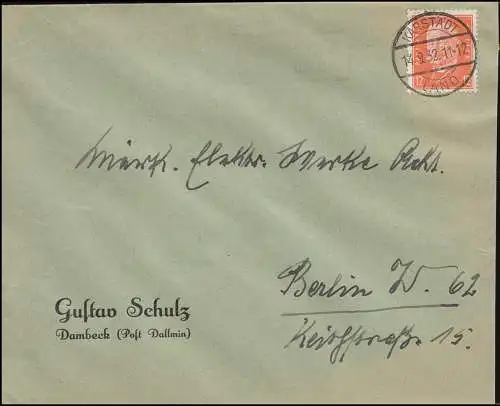 KARSTADT
14.9.32.11-12
LAND
Märk. Elektr. Werke Act.
Berlin W. 62
Keithstraße 15.
Gustav Schulz
Dambeck (Post Dallmin)